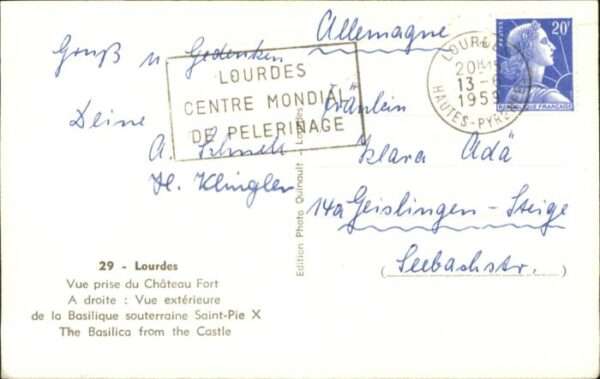 Allemagne
Gruß u Gedenken
LOURDES
CENTRE MONDIAL
DE PELERINAGE
Deine
A.
H. Klingler
Fräulein
Klara Adä
14a Geislingen-Steige
(Seebachstr.)
LOURDES
20H
13-6
1959
HAUTES-PYR
20F
POSTES
REPUBLIQUE FRANÇAISE
Edition Photo Quinault - Lourdes
29 - Lourdes
Vue prise du Château Fort
A droite : Vue extérieure
de la Basilique souterraine Saint-Pie X
The Basilica from the Castle